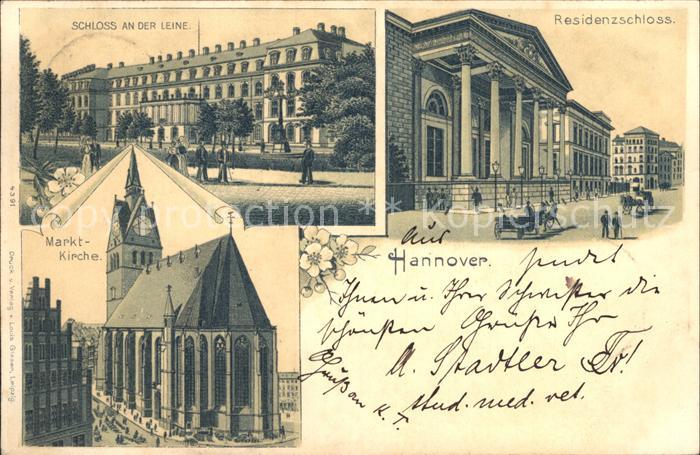 SCHLOSS AN DER LEINE.
Residenzschloss.
Markt-
Kirche.
Aus
Hannover. sendet
Ihnen u. Ihrer Schwester die
schönsten Grüße Ihr
A. Stadtler
stud. med. vet.
Gruß an
4391
Druck u. Verlag v. Louis Glaser, Leipzig.
copyright protection copyright protection